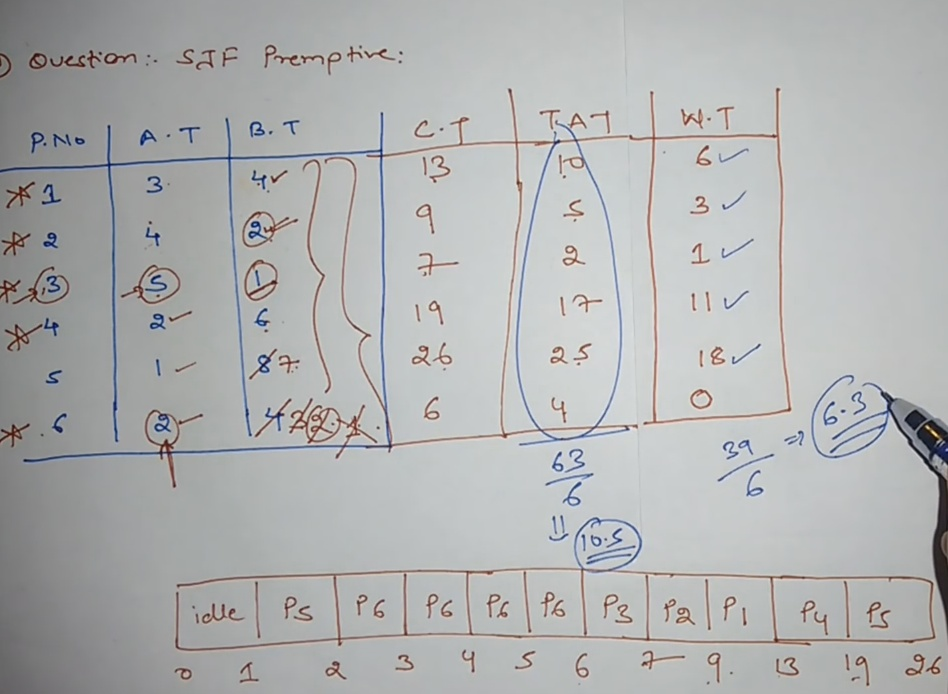 Question:- SJF Premptive:
P.No A.T B.T C.T T.A.T W.T
1 3 4 13 10 6
2 4 2 9 5 3
3 5 1 7 2 1
4 2 6 19 17 11
5 1 8 7 26 25 18
6 2 4 3 2 1 6 4 0
63/6 39/6 => 6.3
= 10.5
idle P5 P6 P6 P6 P6 P3 P2 P1 P4 P5
0 1 2 3 4 5 6 7 9 13 19 26